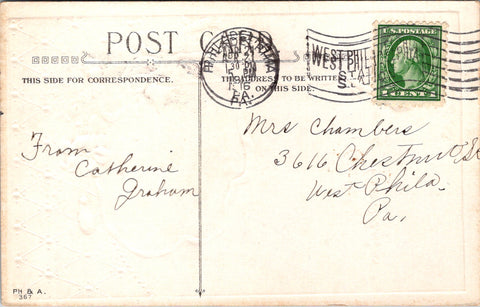 POST CARD
THIS SIDE FOR CORRESPONDENCE.
THE ADDRESS TO BE WRITTEN
ON THIS SIDE.
PHILADELPHIA
PA.
WEST PHILA
STA.
U.S. POSTAGE
CENT
Mrs Chambers
3616 Chestnut St
West Phila.
Pa,
From
Catherine
Graham
PH & A.
367